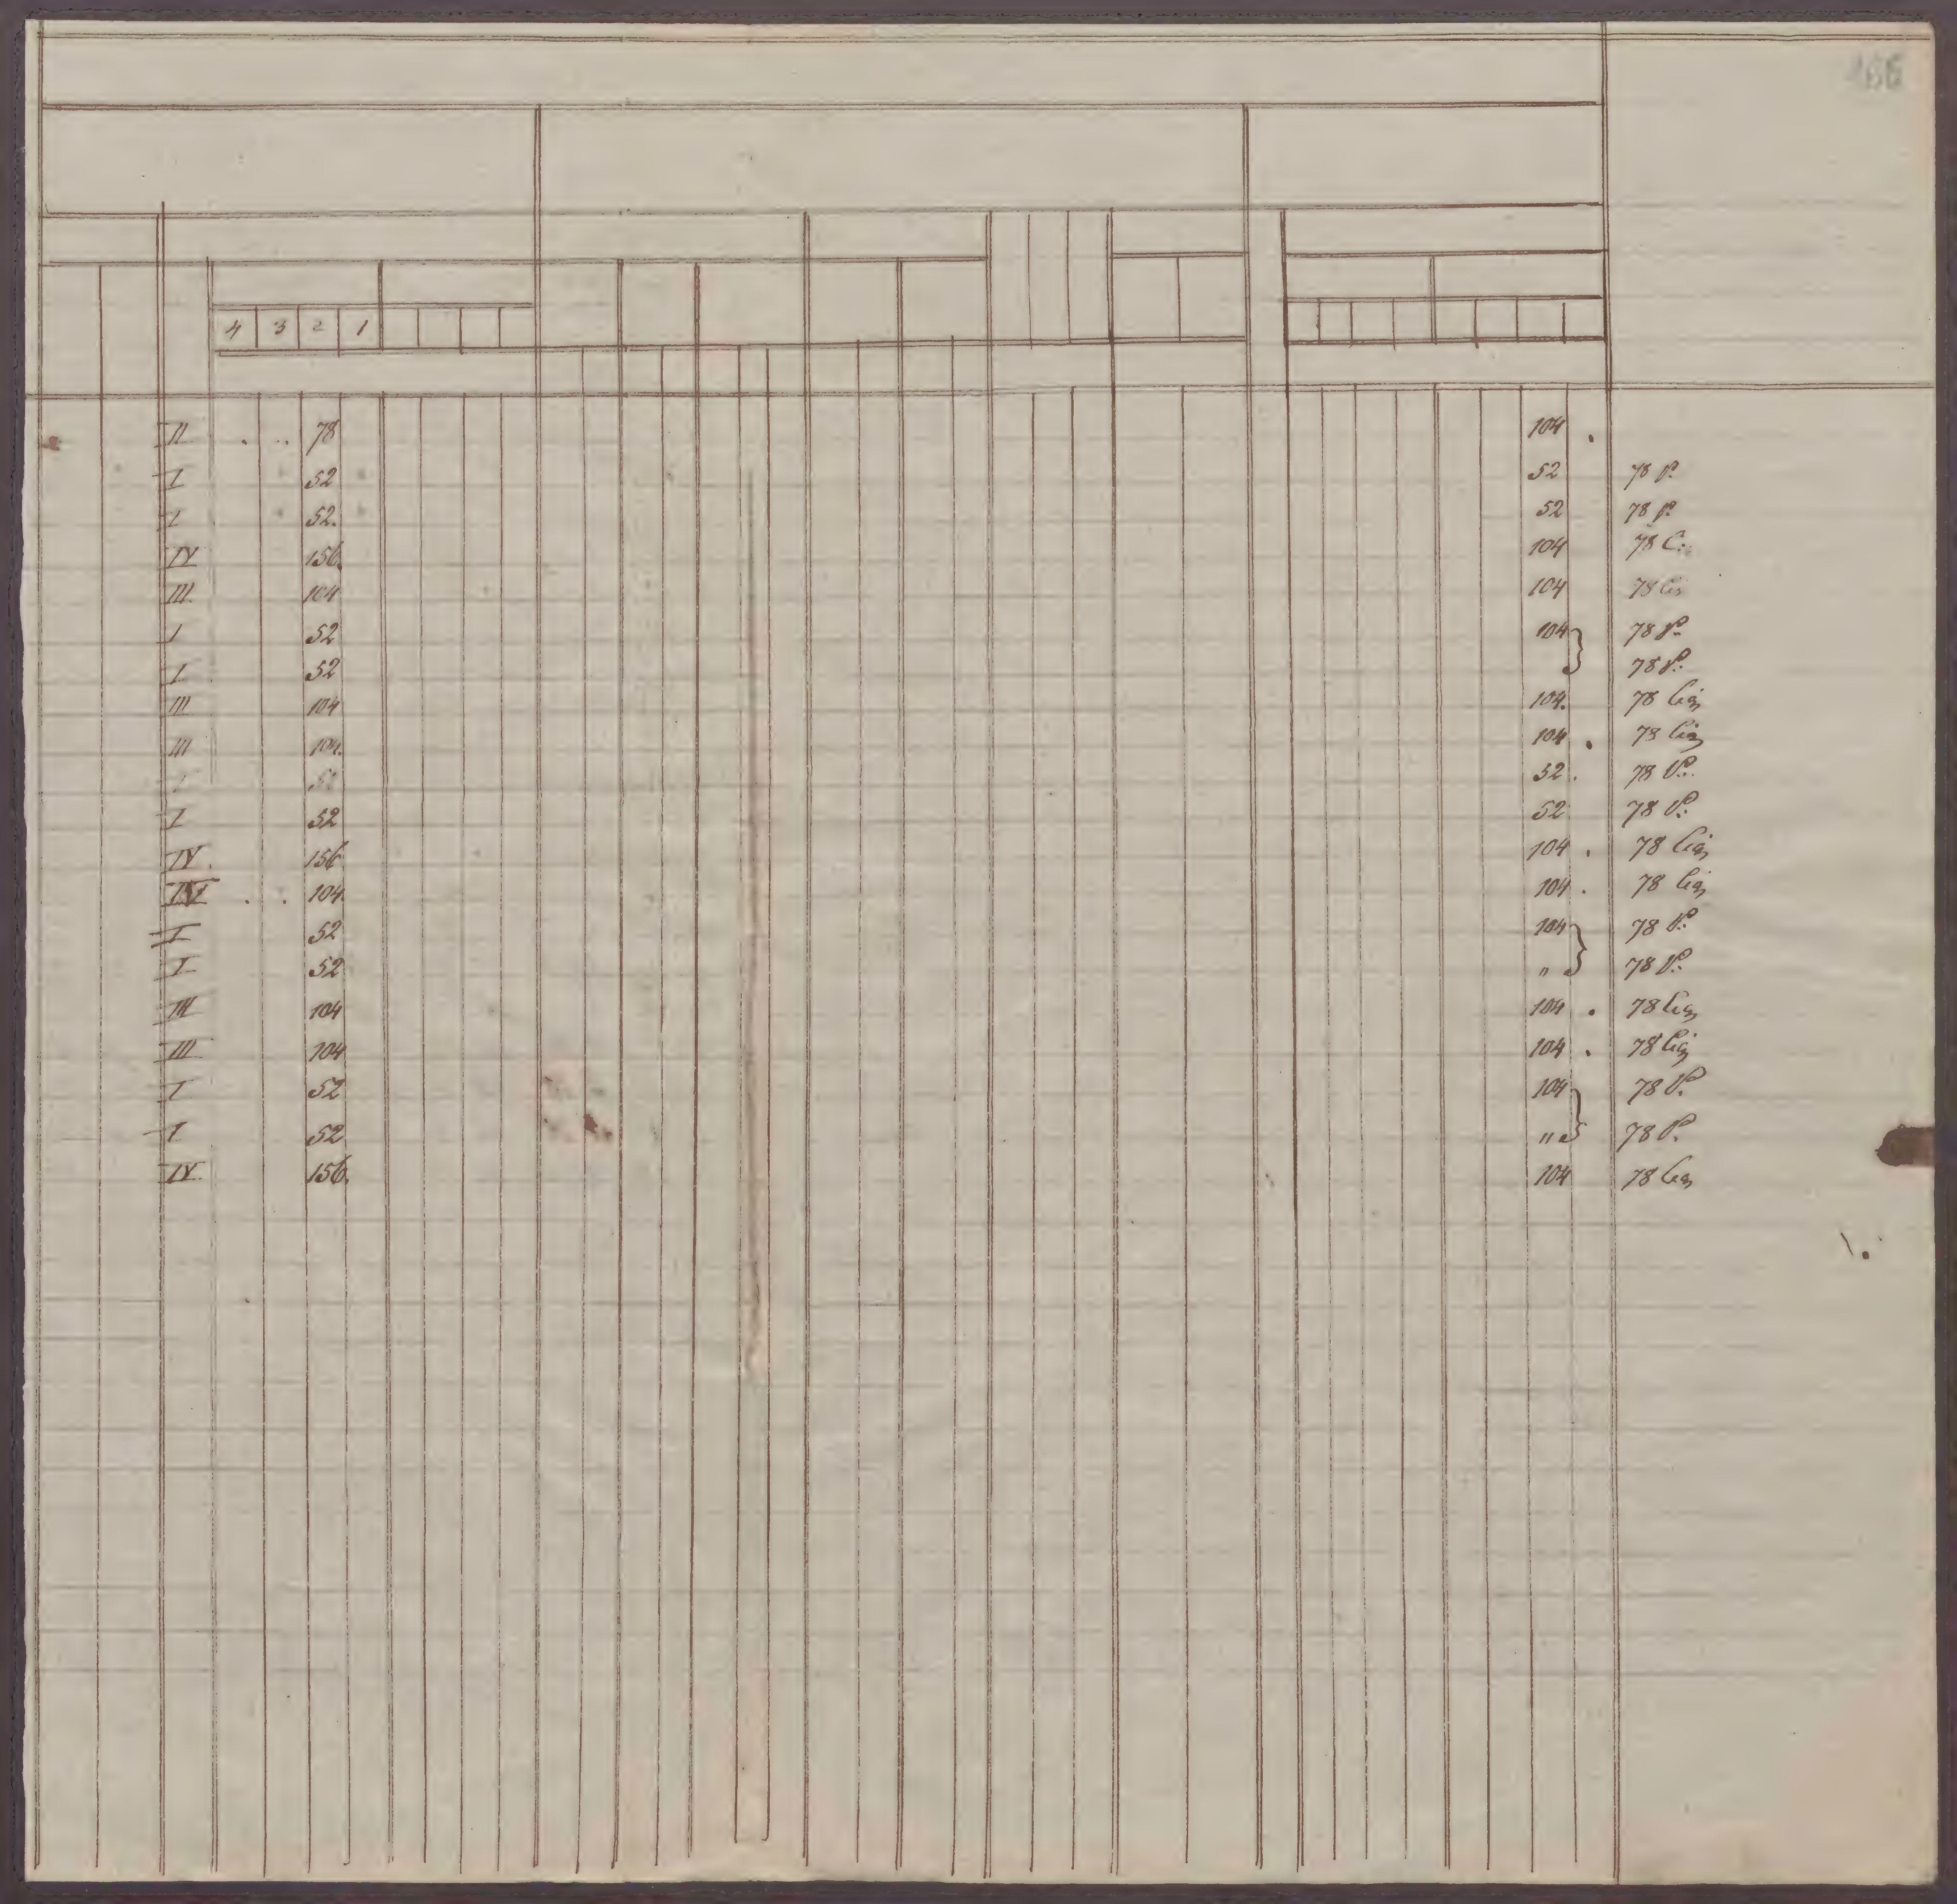 4 3 2 1
II . .. 78 104 .
I 52 52 78 P.
I 52. 52 78 P.
IV 156. 104 78 C.
III 104 104 78
I 52 104 } 78 P.
I 52 78 P.
III 104 104. 78
III 104. 104 . 78
52 . 78 P.
I 52 52 78 P.
IV. 156 104 . 78
. . 104. 104 . 78
I 52 104 } 78 P.
I 52 " 78 P.
III 104 104 . 78
III 104 104 . 78
I 52 104 } 78 P.
I 52 " 78 P.
IV. 156. 104 78